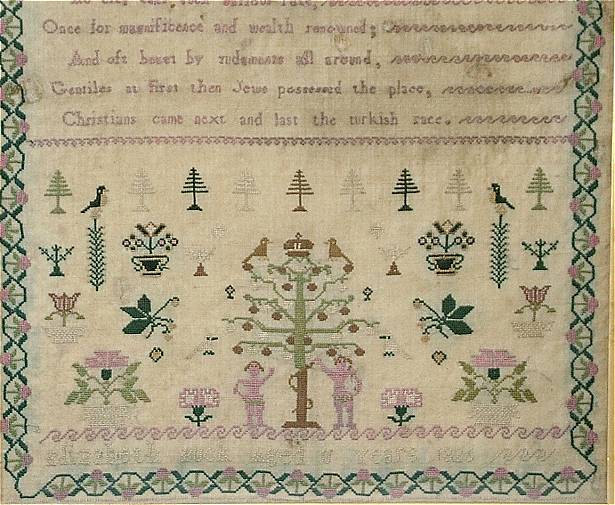 Once for magnificence and wealth renowned;
And oft beset by rudeness all around,
Gentiles at first then Jews possessed the place,
Christians came next and last the turkish race.
aged Years